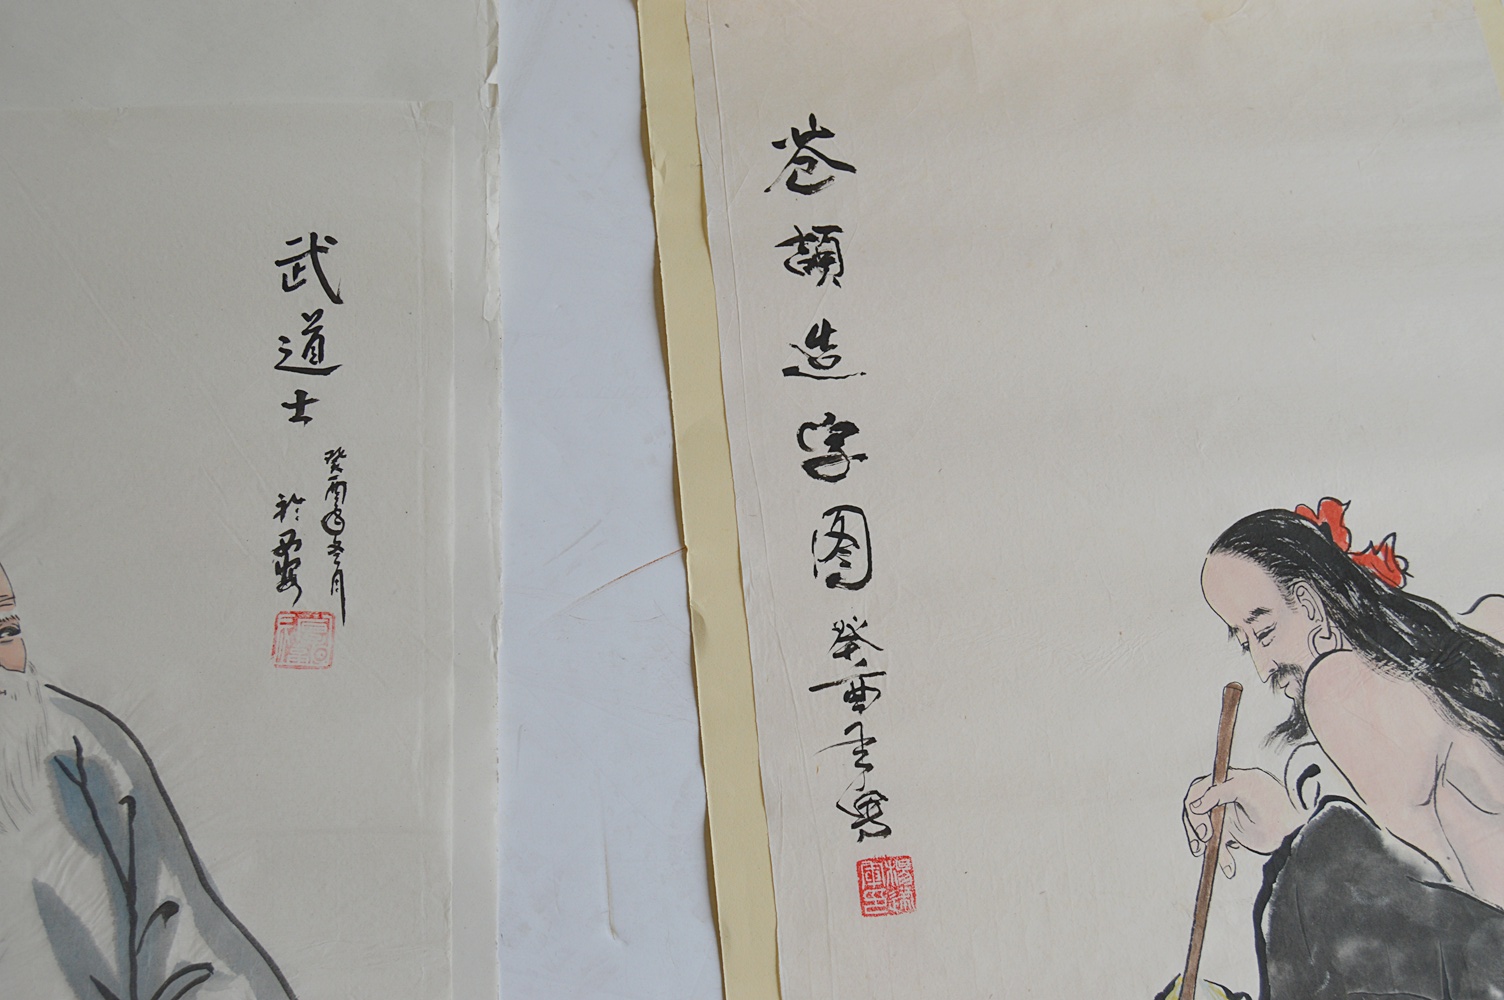 武道士
癸酉年冬月
於西安
苍頡造字图 癸酉年